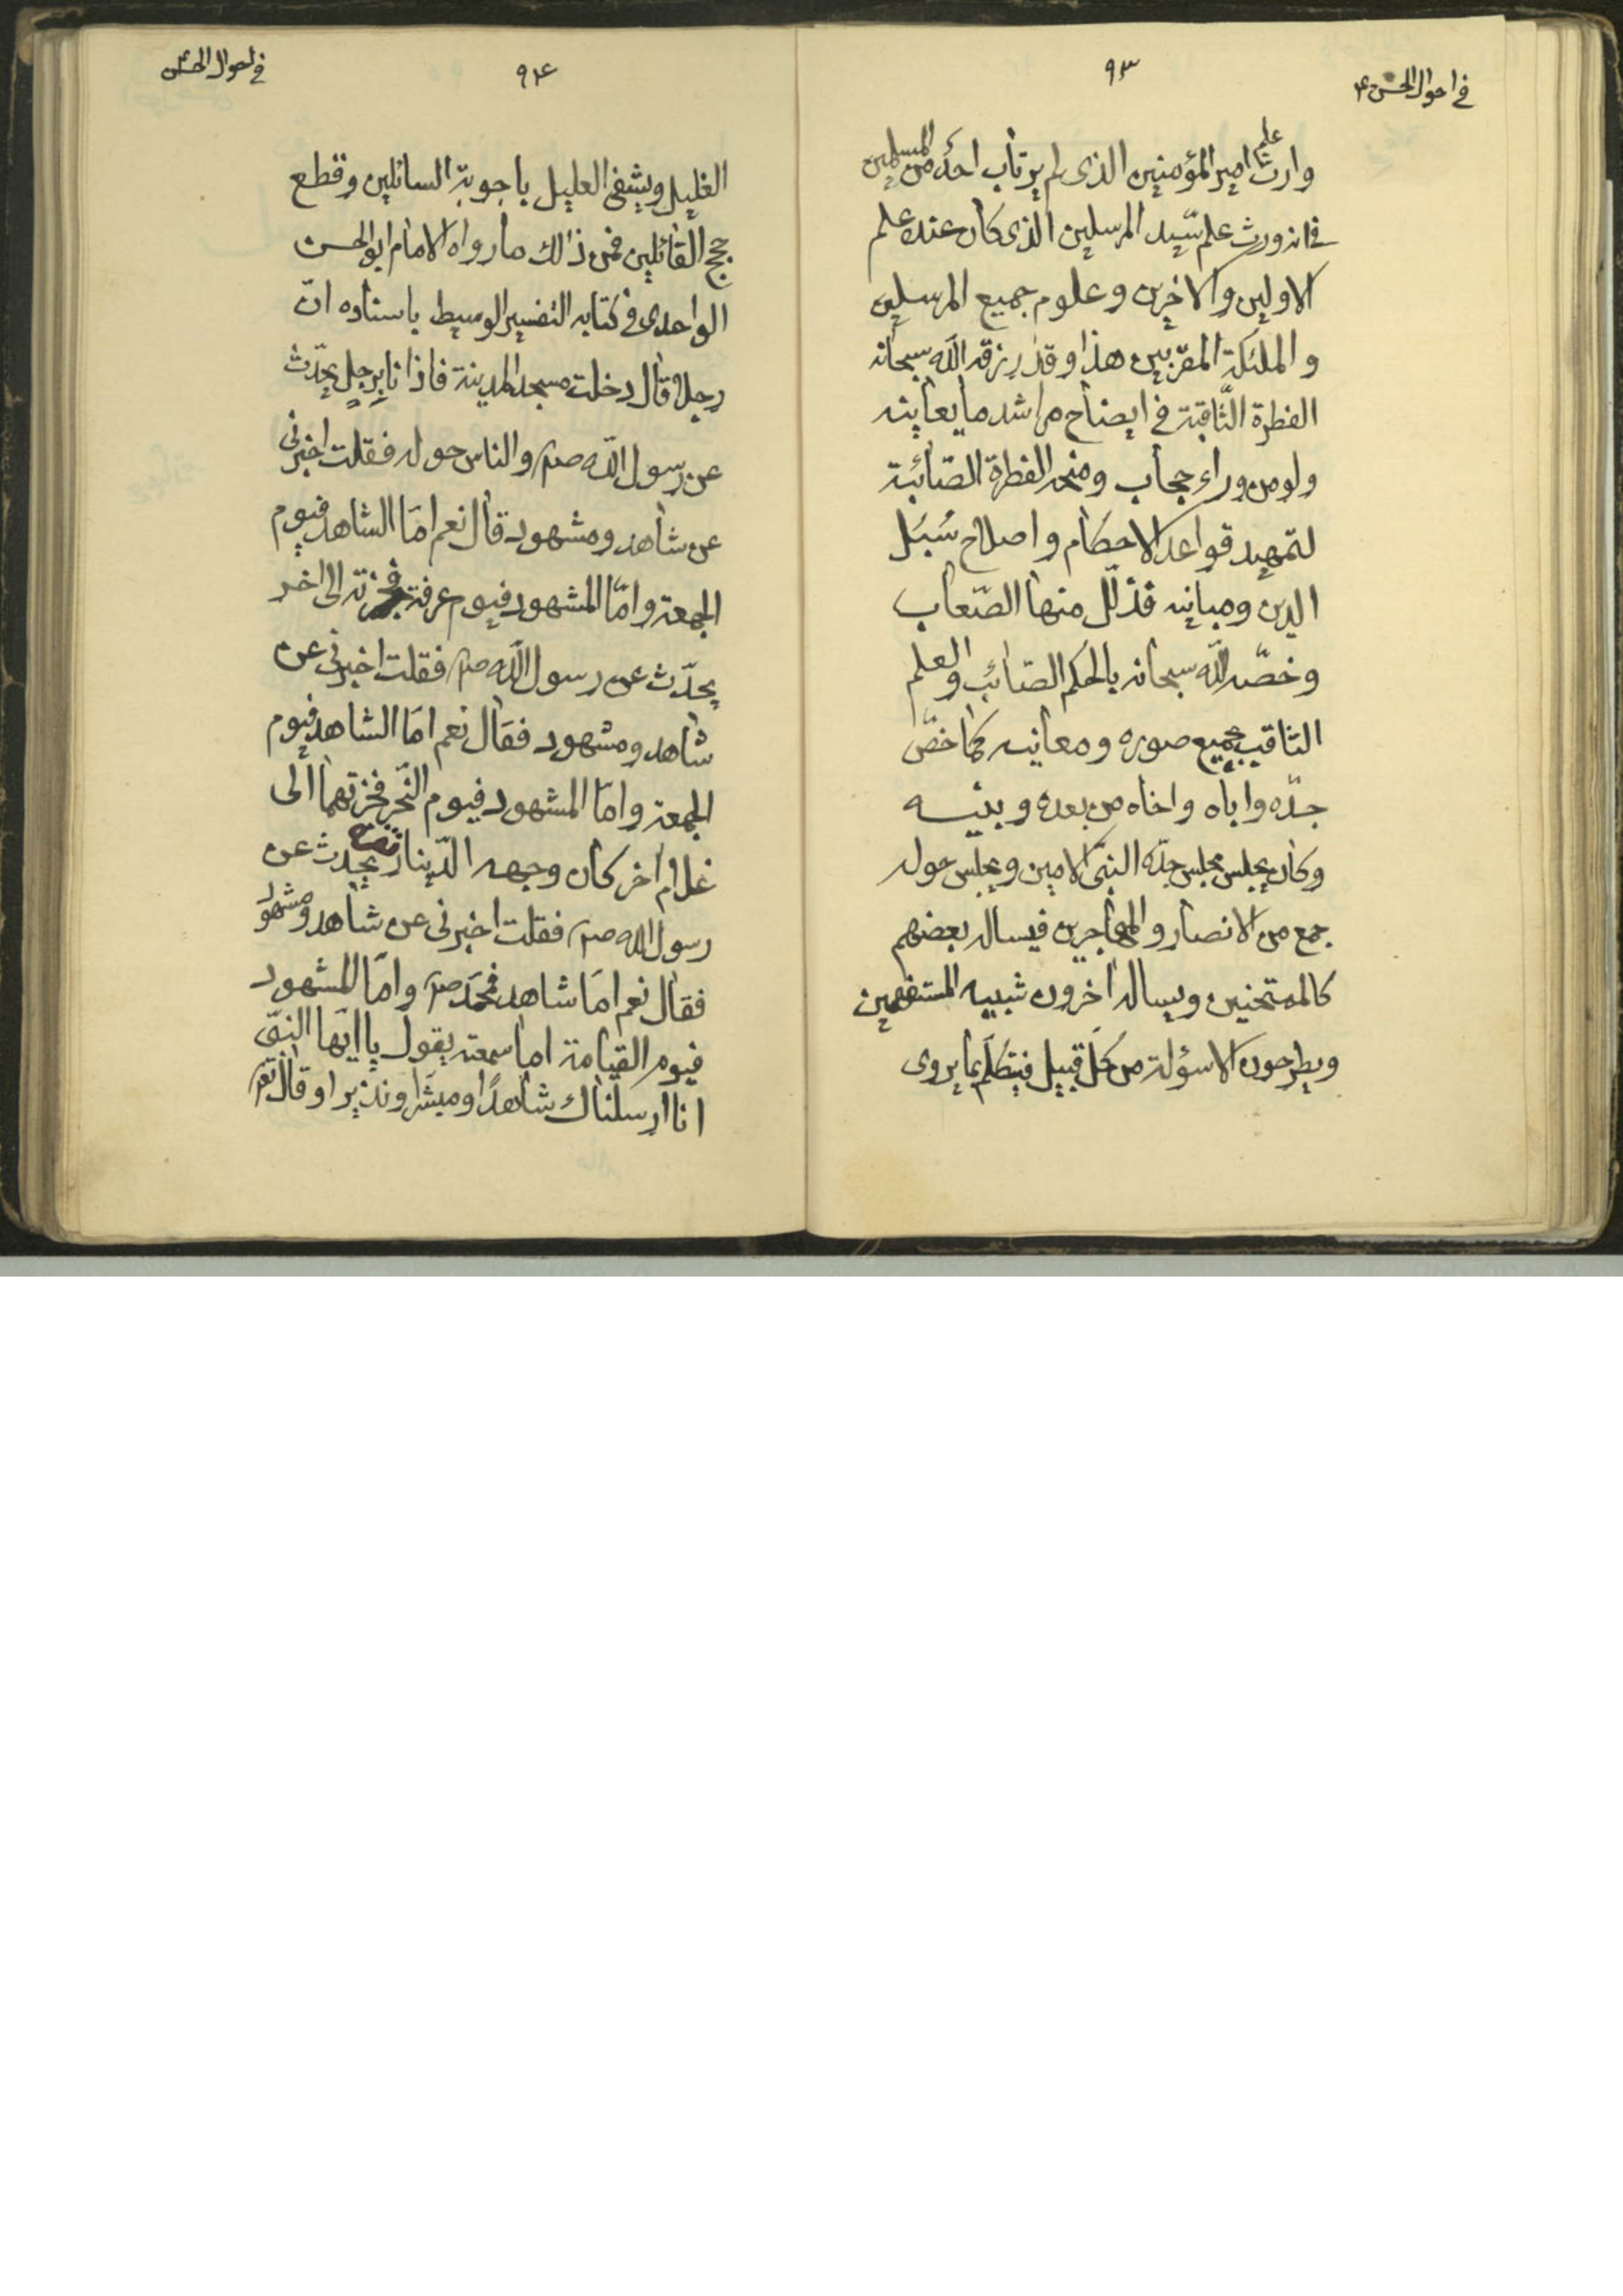 في احوال الحسن ع
٩٣
وارث علم امير المؤمنين الذى لم يرتاب احد من المسلمين
فى انه ورث علم سّيد المرسلين الذى كان عنده علم
الاولين والاخرين وعلوم جميع المرسلين
والملئكة المقرّبين هذا وقد رزقه اللّه سبحانه
الفطرة الثّاقبة فى ايضاح مراشد ما يعاينه
ولو من وراء حجاب ومنحه الفطرة الصّائبة
لتمهيد قواعد الاحكام واصلاح سُبُل
الدين ومبانيه فذلّل منها الصّعاب
وخصّه اللّه سبحانه بالحكم الصّائب والعلم
الثاقب بجميع صوره ومعانيه كما خصّ
جدّه واباه واخاه من بعده وبنيه
وكان يجلس مجلس جدّه النبىّ الامين ويجلس حوله
جمع من الانصار والمهاجرين فيساله بعضهم
كالممتحنين ويساله اخرون شبيه المستفهمين
ويطرحون الاسؤلة من كلّ قبيل فيتكلّم بما يروى
في احوال الحسن
٩٤
الغليل ويشفى العليل باجوبة السائلين وقطع
حجج القائلين فمن ذالك ما رواه الامام ابو الحسن
الواحدى فى كتابه التفسير الوسيط باسناده انّ
رجلا قال دخلت مسجد المدينة فاذا انا برجل يحدّث
عن رسول اللّه صم والناس حوله فقلت اخبرنى
عن شاهد ومشهود قال نعم امّا الشاهد فيوم
الجمعة وامّا المشهود فيوم عرفة فجزته الى اخر
يحدّث عن رسول اللّه صم فقلت اخبرنى عن
شاهد ومشهود فقال نعم امّا الشاهد فيوم
الجمعة وامّا المشهود فيوم النّحر فجزتهما الى
غلام اخر كان وجهه الدّينار يحدث عن
رسول الله صم فقلت اخبرنى عن شاهد ومشهود
فقال نعم امّا شاهد فمحمّد صم وامّا المشهود
فيوم القيامة اما سمعته يقول يا ايّها النبىّ
انا ارسلناك شاهدًا ومبشّرا ونذيرا وقال تعم